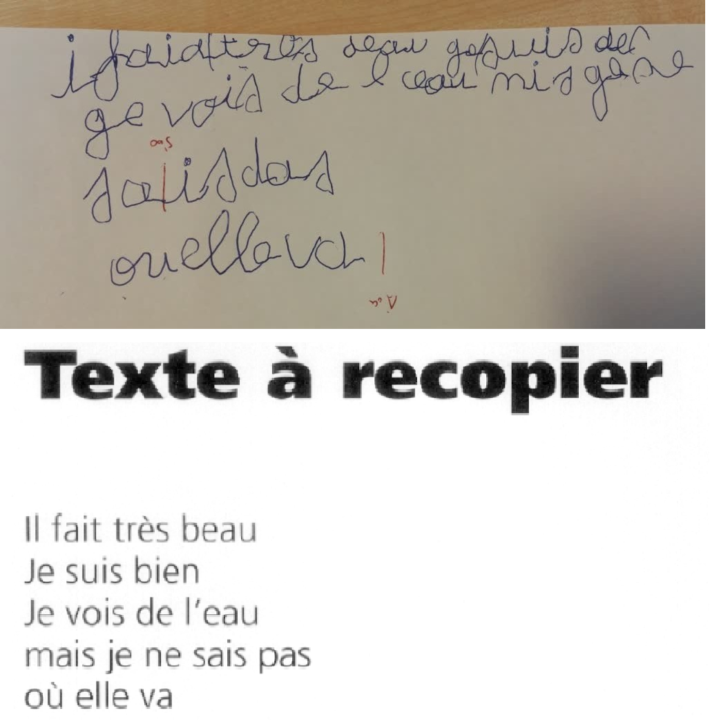 i faiattres deau gesuis der
ge vois de l ceau mis gene
salis das
ouelleva
Texte à recopier
Il fait très beau
Je suis bien
Je vois de l'eau
mais je ne sais pas
où elle va